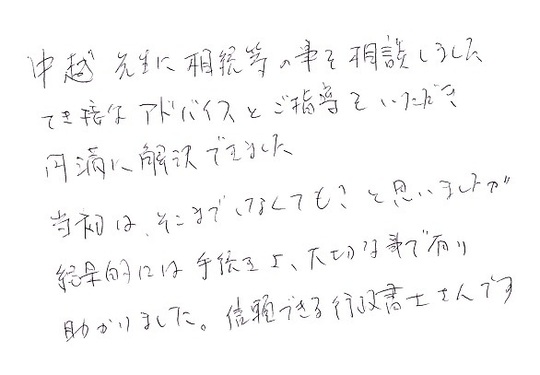 中越 先生に相続等の事を相談しました
てき格なアドバイスとご指導をいただき
円満に解決できました
当初は、そこまでしなくても?と思いましたが
結果的には手伝え、大切な事で有り
助かりました。信頼できる行政書士さんです